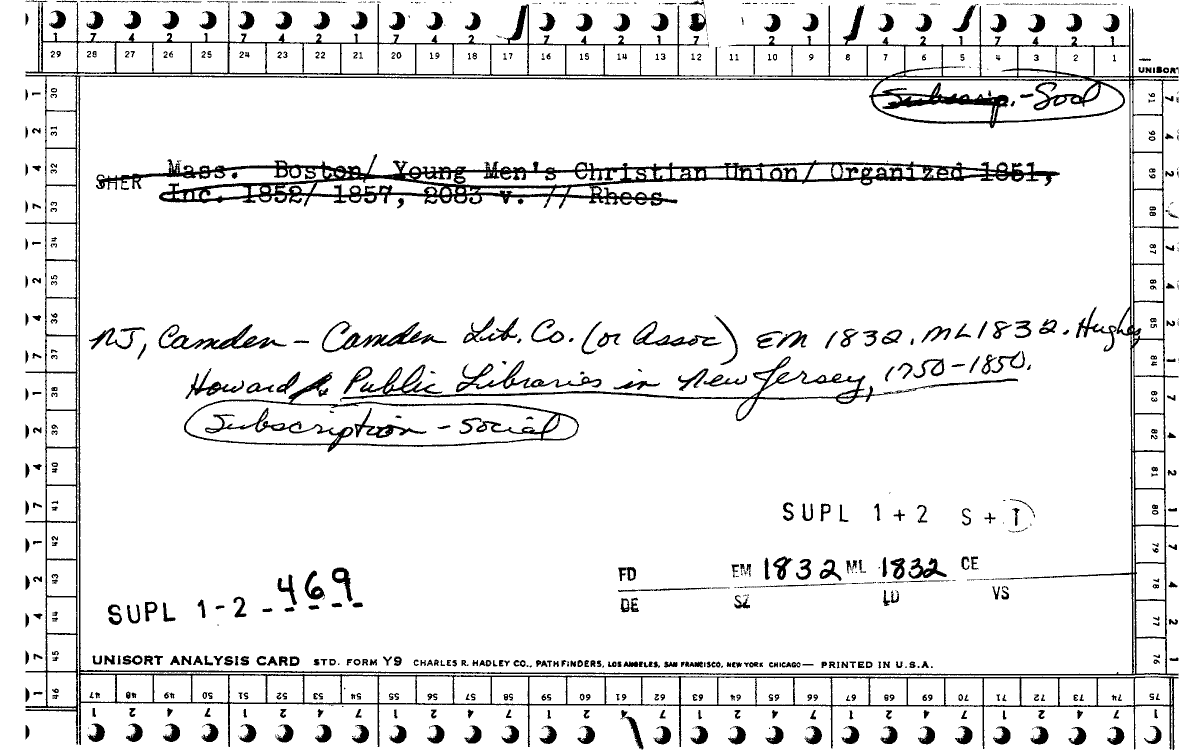 1 7 4 2 1 7 4 2 1 7 4 2 1 7 4 2 1 7 4 2 1 7 4 2 1
29 28 27 26 25 24 23 22 21 20 19 18 17 16 15 14 13 12 11 10 9 8 7 6 5 4 3 2 1
UNISORT
Subscrip.-Socl
SHER Mass. Boston/ Young Men's Christian Union/ Organized 1851,
Inc. 1852/ 1857, 2083 v. // Rhees
NJ, Camden - Camden Lib. Co. (or Assoc) EM 1832. ML 1832. Hughes
Howard Public Libraries in New Jersey, 1750-1850.
Subscription - social
SUPL 1 + 2 S + I
FD EM 1832 ML 1832 CE
DE SZ LD VS
SUPL 1-2 469
UNISORT ANALYSIS CARD STD. FORM Y9 CHARLES R. HADLEY CO., PATHFINDERS, LOS ANGELES, SAN FRANCISCO, NEW YORK CHICAGO— PRINTED IN U.S.A.
47 48 49 50 51 52 53 54 55 56 57 58 59 60 61 62 63 64 65 66 67 68 69 70 71 72 73 74 75
1 2 4 7 1 2 4 7 1 2 4 7 1 2 4 7 1 2 4 7 1 2 4 7 1 2 4 7 1